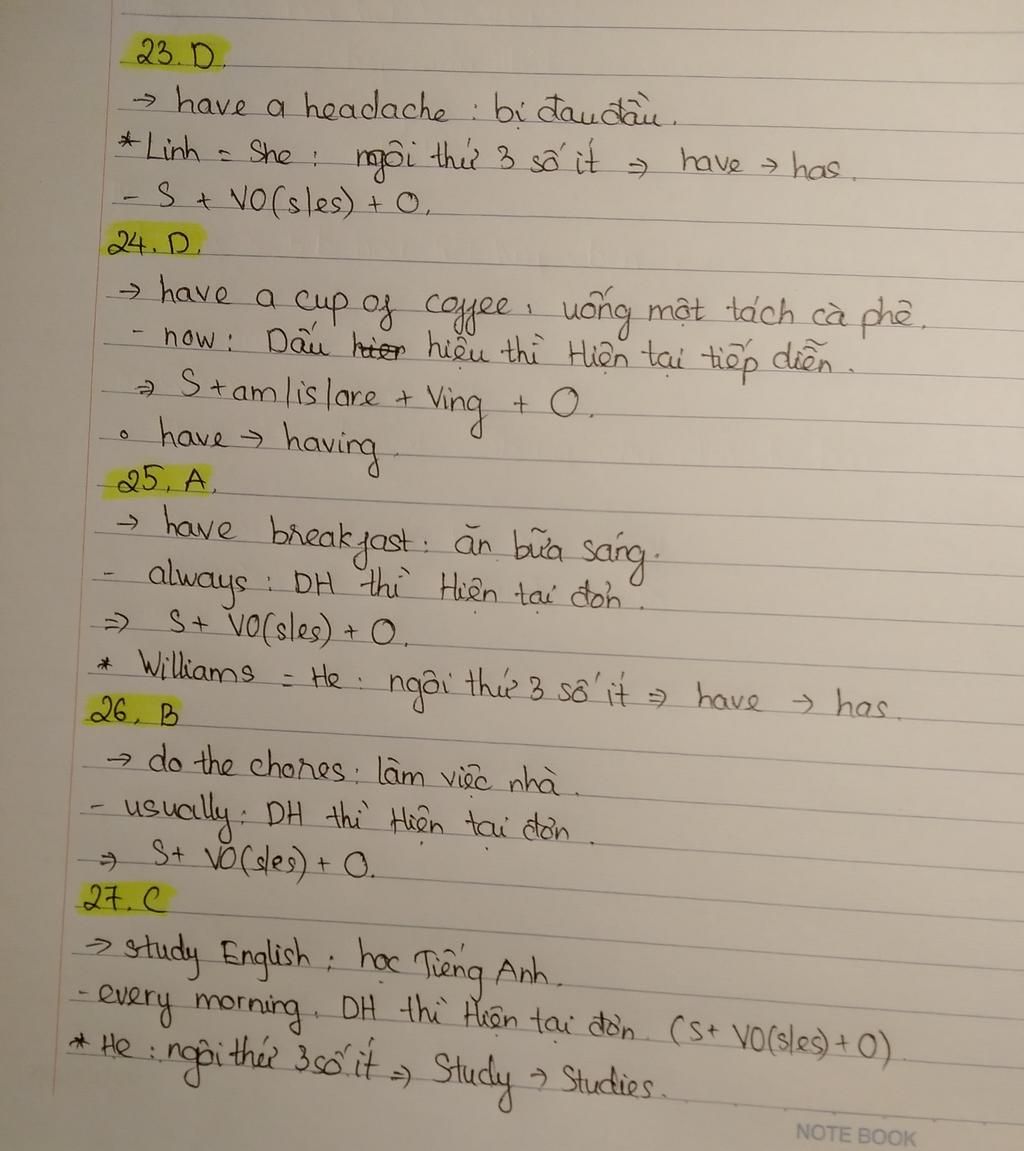 23. D.
→ have a headache : bị đau đầu.
* Linh = She : ngôi thứ 3 số ít ⇒ have → has.
- S + V0(s/es) + O.
24. D.
→ have a cup of coffee : uống một tách cà phê.
- now : Dấu hiệu thì Hiện tại tiếp diễn.
⇒ S + am/is/are + Ving + O.
∘ have → having.
25. A.
→ have breakfast : ăn bữa sáng.
- always : DH thì Hiện tại đơn.
⇒ S + V0(s/es) + O.
* Williams = He : ngôi thứ 3 số ít ⇒ have → has.
26. B
→ do the chores : làm việc nhà.
- usually : DH thì Hiện tại đơn.
⇒ S + V0(s/es) + O.
27. C
→ study English : học Tiếng Anh.
- every morning. DH thì Hiện tại đơn. (S + V0(s/es) + O)
* He : ngôi thứ 3 số ít ⇒ Study → Studies.
NOTE BOOK